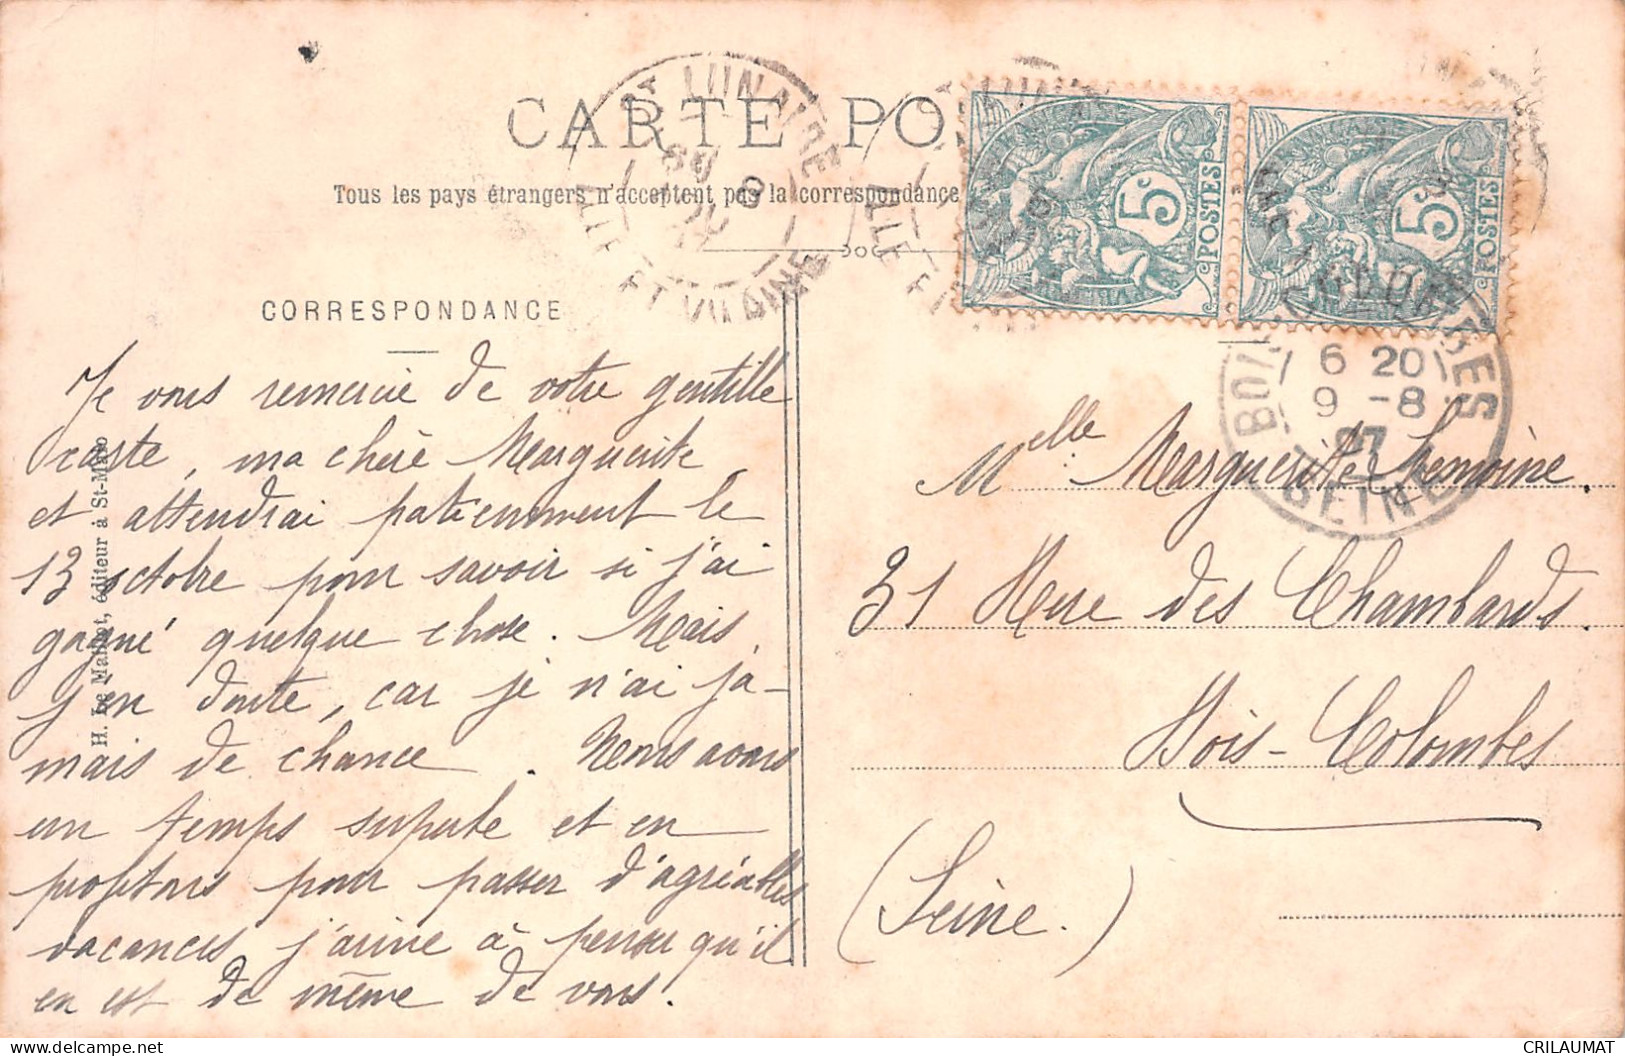 CARTE PO
Tous les pays étrangers n'acceptent pas la correspondance
CORRESPONDANCE
Je vous remercie de votre gentille
carte, ma chère Marguerite,
et attendrai patiemment le
13 octobre pour savoir si j'ai
gagné quelque chose. Mais
j'en doute, car je n'ai ja-
mais de chance. Nous avons
un temps superbe et en
profitons pour passer d'agréables
vacances j'aime à penser qu'il
en est de même de vous.
H. Le Maliot, éditeur à St-Malo
St LUNAIRE
ILLE ET VILAINE
5c
POSTES
5c
POSTES
BOIS-COLOMBES
6 20
9 -8
07
SEINE
Melle Marguerite Lemoine.
31 Rue des Chambards.
Bois-Colombes
(Seine.)
CRILAUMAT